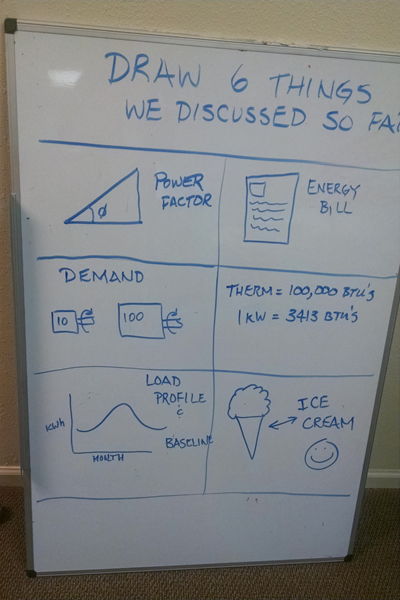 DRAW 6 THINGS
WE DISCUSSED SO FA
POWER
FACTOR
φ
ENERGY
BILL
DEMAND
10
100
THERM = 100,000 BTU'S
1 KW = 3413 BTU'S
LOAD
PROFILE
&
BASELINE
KWh
MONTH
ICE
CREAM